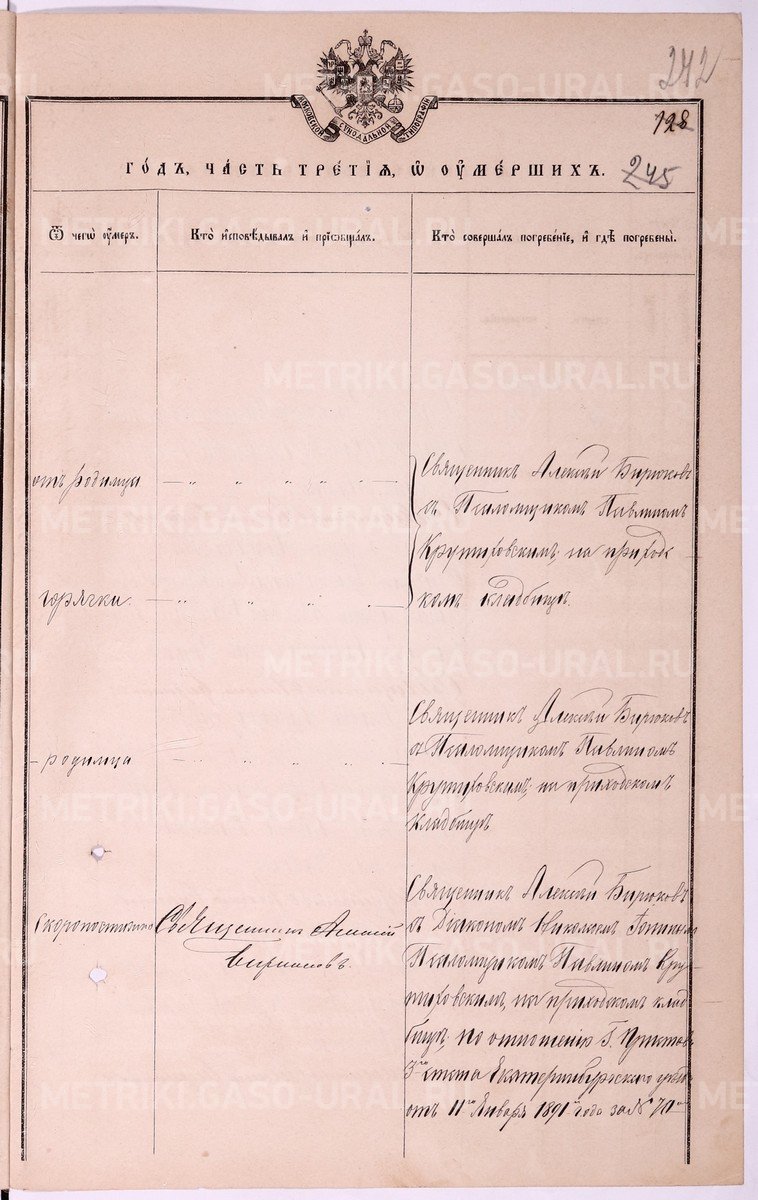 242
МОСКОВСКОЙ СѴНОДАЛЬНОЙ ТИПОГРАФІИ
128
ГО́ДЪ, ЧА́СТЬ ТРЕ́ТІѦ, Ѡ҆ ОУ҆МЕ́РШИХЪ.
245
Ѿ чегѡ̀ оу҆́меръ.
Кто̀ и҆сповѣ́дывалъ и҆ прїѡбща́лъ.
Кто̀ соверша́лъ погребе́нїе, и҆ гдѣ̀ погребены̀.
METRIKI.GASO-URAL.RU
отъ родимца
— „ „ „ „ „ —
Священникъ Алексѣй Бирюковъ
съ Псаломщикомъ Павлиномъ
Крутиховскимъ, на приход
скомъ кладбищѣ.
горячки.
— „ „ „ „ —
- родимца
— „ „ „ „ —
Священникъ Алексѣй Бирюковъ
съ Псаломщикомъ Павлиномъ
Крутиховскимъ, на приходскомъ
кладбищѣ
Скоропостижно
Священникъ Алексій
Бирюковъ.
Священникъ Алексѣй Бирюковъ
съ Діакономъ Николаемъ
Псаломщикомъ Павлиномъ Кру-
тиховскимъ, на приходскомъ клад
бищѣ, по отношенію Г. Пристава
3го стана Екатеринбургскаго уѣзда
отъ 11го Января 1891 года за № 70м